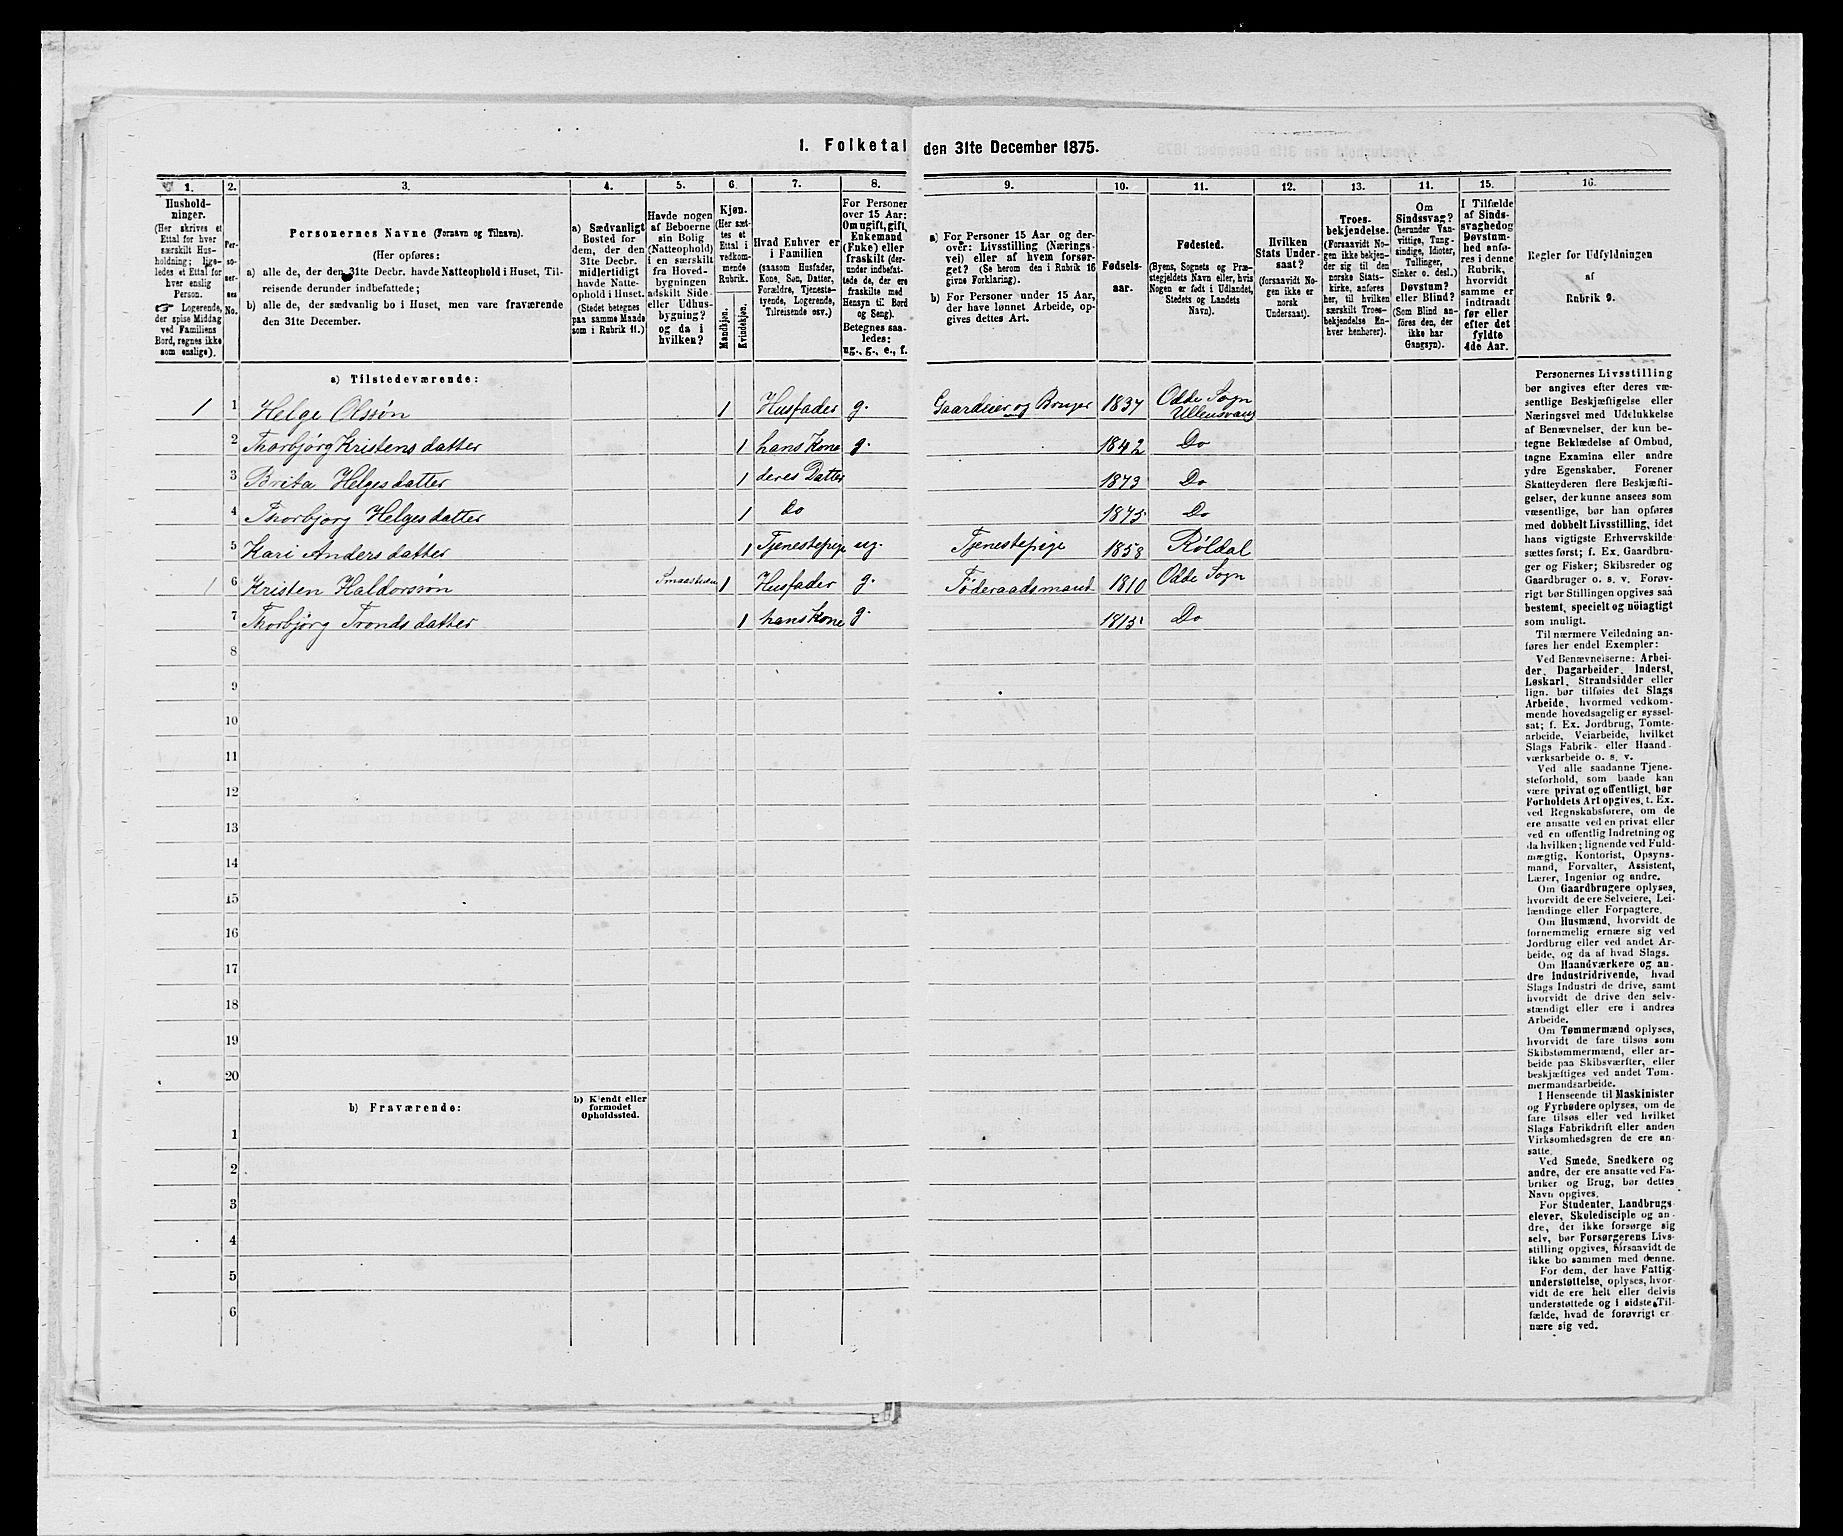 1. Folketal den 31te December 1875.
1. 2. 3. 4. 5. 6. 7. 8. 9. 10. 11. 12. 13. 14. 15. 16.
Hushold-
ninger.
(Her skrives et
Ettal for hver
særskilt Hus-
holdning; lige-
ledes et Ettal for
hver enslig
Person.
☞ Logerende,
der spise Middag
ved Familiens
Bord, regnes ikke
som enslige).
Per-
so-
ner-
nes
No.
Personernes Navne (Fornavn og Tilnavn).
(Her opføres:
a) alle de, der den 31te Decbr. havde Natteophold i Huset, Til-
reisende derunder indbefattede;
b) alle de, der sædvanlig bo i Huset, men vare fraværende
den 31te December.
a) Sædvanligt
Bosted for
dem, der den
31te Decbr.
midlertidigt
havde Natte-
ophold i Huset.
(Stedet betegnes
paa samme Maade
som i Rubrik 11.)
Havde nogen
af Beboerne
sin Bolig
(Natteophold)
i en særskilt
fra Hoved-
bygningen
adskilt Side-
eller Udhus-
bygning?
og da i
hvilken?
Kjøn.
(Her sæt-
tes et
Ettal i
vedkom-
mende
Rubrik.
Mandkjøn.
Kvindekjøn.
Hvad Enhver er
i Familien
(saasom Husfader,
Kone, Søn, Datter,
Forældre, Tjeneste-
tyende, Logerende,
Tilreisende osv.)
For Personer
over 15 Aar:
Om ugift, gift,
Enkemand
(Enke) eller
fraskilt (der-
under indbefat-
tede de, der ere
fraskilte med
Hensyn til Bord
og Seng).
Betegnes saa-
ledes:
ug., g., e., f.
a) For Personer 15 Aar og der-
over: Livsstilling (Nærings-
vei) eller af hvem forsør-
get? (Se herom den i Rubrik 16
givne Forklaring).
b) For Personer under 15 Aar,
der have lønnet Arbeide, op-
gives dettes Art.
Fødsels-
aar.
Fødested.
(Byens, Sognets og Præ-
stegjeldets Navn eller, hvis
Nogen er født i Udlandet,
Stedets og Landets
Navn).
Hvilken
Stats Under-
saat?
(forsaavidt No-
gen ikke er
norsk
Undersaat).
Troes-
bekjendelse.
(Forsaavidt No-
gen ikke bekjen-
der sig til den
norske Stats-
kirke, anføres
her, til hvilken
særskilt Troes-
bekjendelse En-
hver henhører).
Om
Sindssvag?
(herunder Van-
vittige, Tung-
sindige, Idioter,
Tullinger,
Sinker o. desl.)
Døvstum?
eller Blind?
(Som Blind an-
føres den, der
ikke har
Gangsyn).
I Tilfælde
af Sinds-
svaghed og
Døvstum-
hed anfø-
res i denne
Rubrik,
hvorvidt
samme er
indtraadt
før eller
efter det
fyldte
4de Aar.
Regler for Udfyldningen
af
Rubrik 9.
a) Tilstedeværende:
1 1 Helge Olssøn 1 Husfader g. Gaardeier og Bruger 1837 Odde Sogn Ullensvang
2 Thorbjørg Kristensdatter 1 hans Kone g. 1842 Do
3 Brita Helgesdatter 1 deres Datter 1873 Do
4 Thorbjørg Helgesdatter 1 Do 1875 Do
5 Kari Andersdatter 1 Tjenestepige ug. Tjenestepige 1858 Røldal
1 6 Kristen Haldorsøn 1 Husfader g. Føderaadsmand 1810 Odde Sogn
7 Thorbjørg Trondsdatter 1 hans Kone g. 1815 Do
8
9
10
11
12
13
14
15
16
17
18
19
20
b) Fraværende:
b) Kjendt eller
formodet
Opholdssted.
1
2
3
4
5
6
Personernes Livsstilling
bør angives efter deres væ-
sentlige Beskjæftigelse eller
Næringsvei med Udelukkelse
af Benævnelser, der kun be-
tegne Beklædelse af Ombud,
tagne Examina eller andre
ydre Egenskaber. Forener
Skatteyderen flere Beskjæfti-
gelser, der kunne ansees som
væsentlige, bør han opføres
med dobbelt Livsstilling, idet
hans vigtigste Erhvervskilde
sættes først; f. Ex. Gaardbru-
ger og Fisker; Skibsreder og
Gaardbruger o. s. v. Forøv-
rigt bør Stillingen opgives saa
bestemt, specielt og nöiagtigt
som muligt.
Til nærmere Veiledning an-
føres her endel Exempler:
Ved Benævnelserne: Arbei-
der, Dagarbeider, Inderst,
Løskarl, Strandsidder eller
lign. bør tilføies det Slags
Arbeide, hvormed vedkom-
mende hovedsagelig er syssel-
sat; f. Ex. Jordbrug, Tomte-
arbeide, Veiarbeide, hvilket
Slags Fabrik- eller Haand-
værksarbeide o. s. v.
Ved alle saadanne Tjene-
steforhold, som baade kan
være privat og offentligt, bør
Forholdets Art opgives, t. Ex.
ved Regnskabsførere, om de
ere ansatte ved en privat eller
ved en offentlig Indretning og
da hvilken; lignende ved Fuld-
mægtig, Kontorist, Opsyns-
mand, Forvalter, Assistent,
Lærer, Ingeniør og andre.
Om Gaardbrugere oplyses,
hvorvidt de ere Selveiere, Lei-
lændinge eller Forpagtere.
Om Husmænd, hvorvidt de
fornemmelig ernære sig ved
Jordbrug eller ved andet Ar-
beide, og da af hvad Slags.
Om Haandværkere og an-
dre industridrivende, hvad
Slags Industri de drive, samt
hvorvidt de drive den selv-
stændigt eller ere i andres
Arbeide.
Om Tømmermænd oplyses,
hvorvidt de fare tilsøs som
Skibstømmermænd, eller ar-
beide paa Skibsværfter, eller
beskjæftiges ved andet Tøm-
mermandsarbeide.
I Henseende til Maskinister
og Fyrbødere oplyses, om de
fare tilsøs eller ved hvilket
Slags Fabrikdrift eller anden
Virksomhedsgren de ere an-
satte.
Ved Smede, Snedkere og
andre, der ere ansatte ved Fa-
briker og Brug, bør dettes
Navn opgives.
For Studenter, Landbrugs-
elever, Skoledisciple og an-
dre, der ikke forsørge sig
selv, bør Forsørgerens Livs-
stilling opgives, forsaavidt de
ikke bo sammen med denne.
For dem, der have Fattig-
understøttelse, oplyses, hvor-
vidt de ere helt eller delvis
understøttede og i sidste Til-
fælde, hvad de forøvrigt er-
nære sig ved.